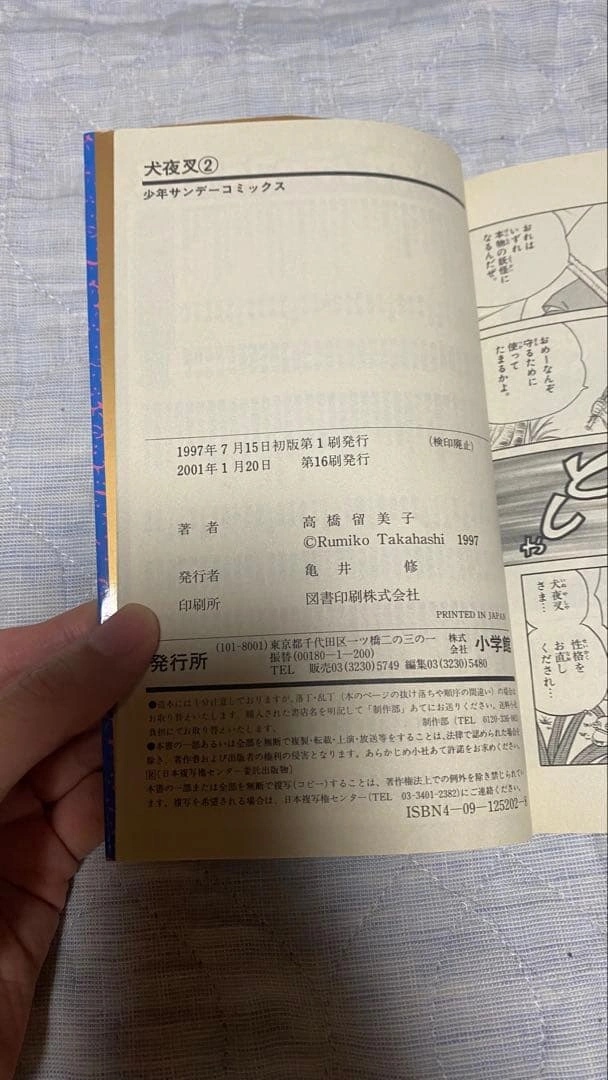 犬夜叉②
少年サンデーコミックス
1997年7月15日初版第1刷発行 (検印廃止)
2001年1月20日 第16刷発行
著者 高橋留美子
©Rumiko Takahashi 1997
発行者 亀井 修
印刷所 図書印刷株式会社
PRINTED IN JAPAN
発行所 (101-8001)東京都千代田区一ツ橋二の三の一 株式会社 小学館
振替(00180-1-200)
TEL 販売03(3230)5749 編集03(3230)5480
●造本には十分注意しておりますが、落丁・乱丁(本のページの抜け落ちや順序の間違い)の場合は
お取り替えいたします。購入された書店名を明記して「制作部」あてにお送りください。送料小社
負担にてお取り替えいたします。 制作部(TEL 0120-336-
●本書の一部あるいは全部を無断で複製・転載・上演・放送等をすることは、法律で認められた場合を
除き、著作者および出版者の権利の侵害となります。あらかじめ小社あて許諾をお求めください。
R[日本複写権センター委託出版物]
本書の一部または全部を無断で複写(コピー)することは、著作権法上での例外を除き禁じられてい
ます。複写を希望される場合は、日本複写権センター(TEL 03-3401-2382)にご連絡ください。
ISBN4-09-125202-8
おれは
いずれ
本物の妖怪に
なるんだぜ。
おめーなんぞ
守るために
使って
たまるかよ。
どしゃ
犬夜叉
さま…
性格を
お直し
くだされ…